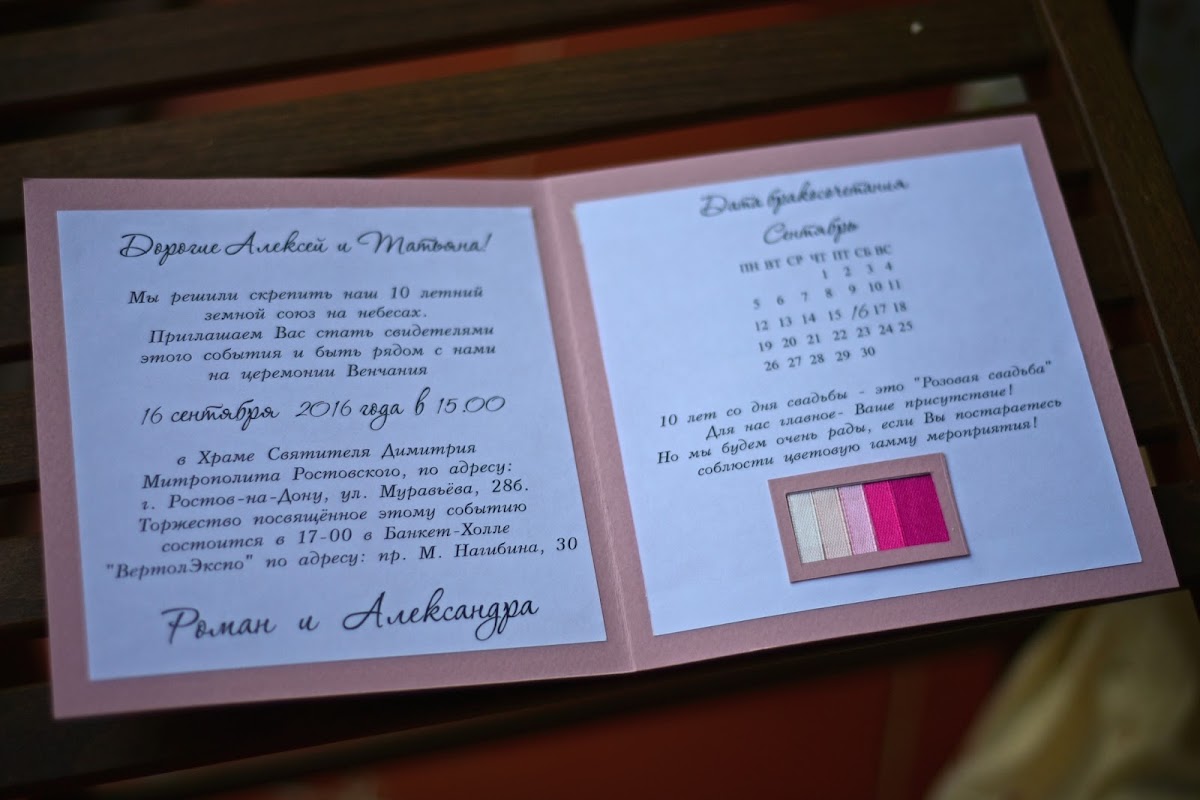 Дорогие Алексей и Татьяна!
Мы решили скрепить наш 10 летний
земной союз на небесах.
Приглашаем Вас стать свидетелями
этого события и быть рядом с нами
на церемонии Венчания
16 сентября 2016 года в 15.00
в Храме Святителя Димитрия
Митрополита Ростовского, по адресу:
г. Ростов-на-Дону, ул. Муравьёва, 28б.
Торжество посвящённое этому событию
состоится в 17-00 в Банкет-Холле
"ВертолЭкспо" по адресу: пр. М. Нагибина, 30
Роман и Александра
Дата бракосочетания
Сентябрь
ПН ВТ СР ЧТ ПТ СБ ВС
1 2 3 4
5 6 7 8 9 10 11
12 13 14 15 16 17 18
19 20 21 22 23 24 25
26 27 28 29 30
10 лет со дня свадьбы - это "Розовая свадьба"
Для нас главное- Ваше присутствие!
Но мы будем очень рады, если Вы постараетесь
соблюсти цветовую гамму мероприятия!